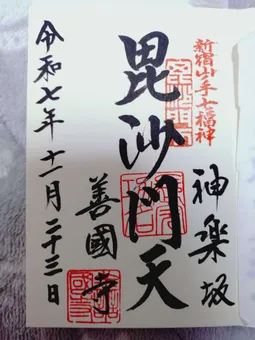 新宿山ノ手七福神
神楽坂
毘沙門天
善國寺
令和七年十一月二十三日